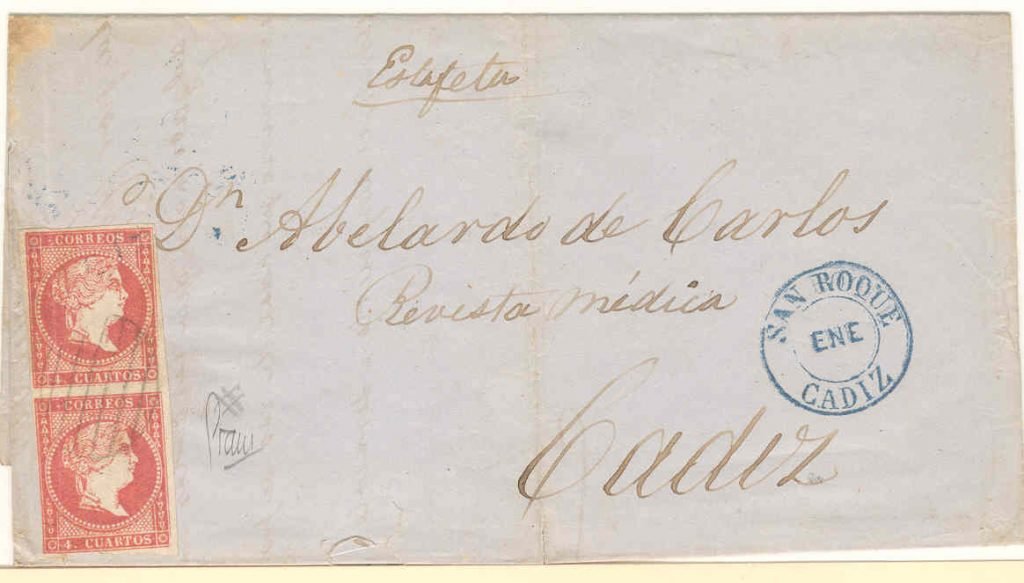 Estafeta
Dn Abelardo de Carlos
Revista médica
Cadiz
SAN ROQUE
ENE
CADIZ
CORREOS
4. CUARTOS
CORREOS
4. CUARTOS